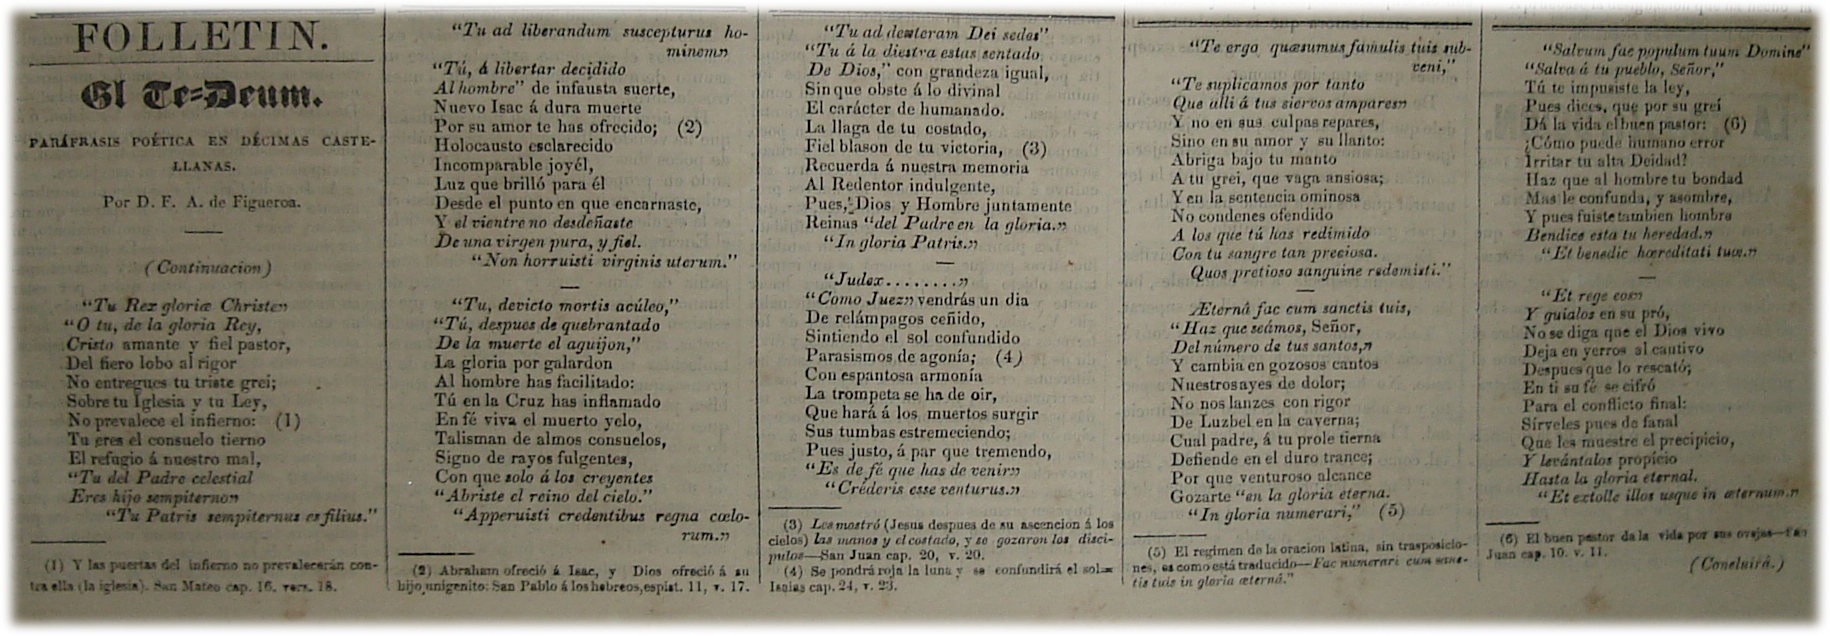 FOLLETIN.
El Te-Deum.
PARÁFRASIS POÉTICA EN DÉCIMAS CASTE-
LLANAS.
Por D. F. A. de Figueroa.
(Continuacion)
"Tu Rex gloriæ Christe"
"O tu, de la gloria Rey,
Cristo amante y fiel pastor,
Del fiero lobo al rigor
No entregues tu triste grei;
Sobre tu Iglesia y tu Ley,
No prevalece el infierno: (1)
Tu eres el consuelo tierno
El refugio á nuestro mal,
"Tu del Padre celestial
Eres hijo sempiterno"
"Tu Patris sempiternus es filius."
(1) Y las puertas del infierno no prevalecerán con-
tra ella (la iglesia). San Mateo cap. 16, vers. 18.
"Tu ad liberandum suscepturus ho-
minem"
"Tú, á libertar decidido
Al hombre" de infausta suerte,
Nuevo Isac á dura muerte
Por su amor te has ofrecido; (2)
Holocausto esclarecido
Incomparable joyél,
Luz que brilló para él
Desde el punto en que encarnaste,
Y el vientre no desdeñaste
De una virgen pura, y fiel.
"Non horruisti virginis uterum."
"Tu, devicto mortis acúleo,"
"Tú, despues de quebrantado
De la muerte el aguijon,"
La gloria por galardon
Al hombre has facilitado:
Tú en la Cruz has inflamado
En fé viva el muerto yelo,
Talisman de almos consuelos,
Signo de rayos fulgentes,
Con que solo á los creyentes
"Abriste el reino del cielo."
"Apperuisti credentibus regna cœlo-
rum."
(2) Abraham ofreció á Isac, y Dios ofreció á su
hijo unigenito: San Pablo á los hebreos, espist. 11, v. 17.
"Tu ad desteram Dei sedes"
"Tu á la diestra estas sentado
De Dios," con grandeza igual,
Sin que obste á lo divinal
El carácter de humanado.
La llaga de tu costado,
Fiel blason de tu victoria, (3)
Recuerda á nuestra memoria
Al Redentor indulgente,
Pues, Dios y Hombre juntamente
Reinas "del Padre en la gloria."
"In gloria Patris."
"Judex........"
"Como Juez" vendrás un dia
De relámpagos ceñido,
Sintiendo el sol confundido
Parasismos de agonía; (4)
Con espantosa armonía
La trompeta se ha de oir,
Que hará á los muertos surgir
Sus tumbas estremeciendo;
Pues justo, á par que tremendo,
"Es de fé que has de venir"
"Créderis esse venturus."
(3) Les mostró (Jesus despues de su ascencion á los
cielos) las manos y el costado, y se gozaron los disci-
pulos—San Juan cap. 20, v. 20.
(4) Se pondrá roja la luna y se confundirá el sol=
Isaias cap. 24, v. 23.
"Te ergo quæsumus famulis tuis sub-
veni,"
"Te suplicamos por tanto
Que alli á tus siervos ampares"
Y no en sus culpas repares,
Sino en su amor y su llanto:
Abriga bajo tu manto
A tu grei, que vaga ansiosa;
Y en la sentencia ominosa
No condenes ofendido
A los que tú has redimido
Con tu sangre tan preciosa.
Quos pretioso sanguine redemisti."
Æternâ fac cum sanctis tuis,
"Haz que seámos, Señor,
Del número de tus santos,"
Y cambia en gozosos cantos
Nuestros ayes de dolor;
No nos lanzes con rigor
De Luzbel en la caverna;
Cual padre, á tu prole tierna
Defiende en el duro trance;
Por que venturoso alcance
Gozarte "en la gloria eterna.
"In gloria numerari," (5)
(5) El regimen de la oracion latina, sin trasposicio-
nes, es como está traducido—Fac numerari cum sanc-
tis tuis in gloria æternâ."
"Salvum fac populum tuum Domine"
"Salva á tu pueblo, Señor,"
Tú te impusiste la ley,
Pues dices, que por su greí
Dá la vida el buen pastor: (6)
¿Cómo puede humano error
Irritar tu alta Deidad?
Haz que al hombre tu bondad
Mas le confunda, y asombre,
Y pues fuiste tambien hombre
Bendice esta tu heredad."
"Et benedic hœreditati tuœ."
"Et rege eos"
Y guialos en su pró,
No se diga que el Dios vivo
Deja en yerros al cautivo
Despues que lo rescató;
En ti su fé se cifró
Para el conflicto final:
Sírveles pues de fanal
Que les muestre el precipicio,
Y levántalos propicio
Hasta la gloria eternal.
"Et extolle illos usque in æternum."
(6) El buen pastor da la vida por sus ovejas—San
Juan cap. 10. v. 11.
(Concluirá.)